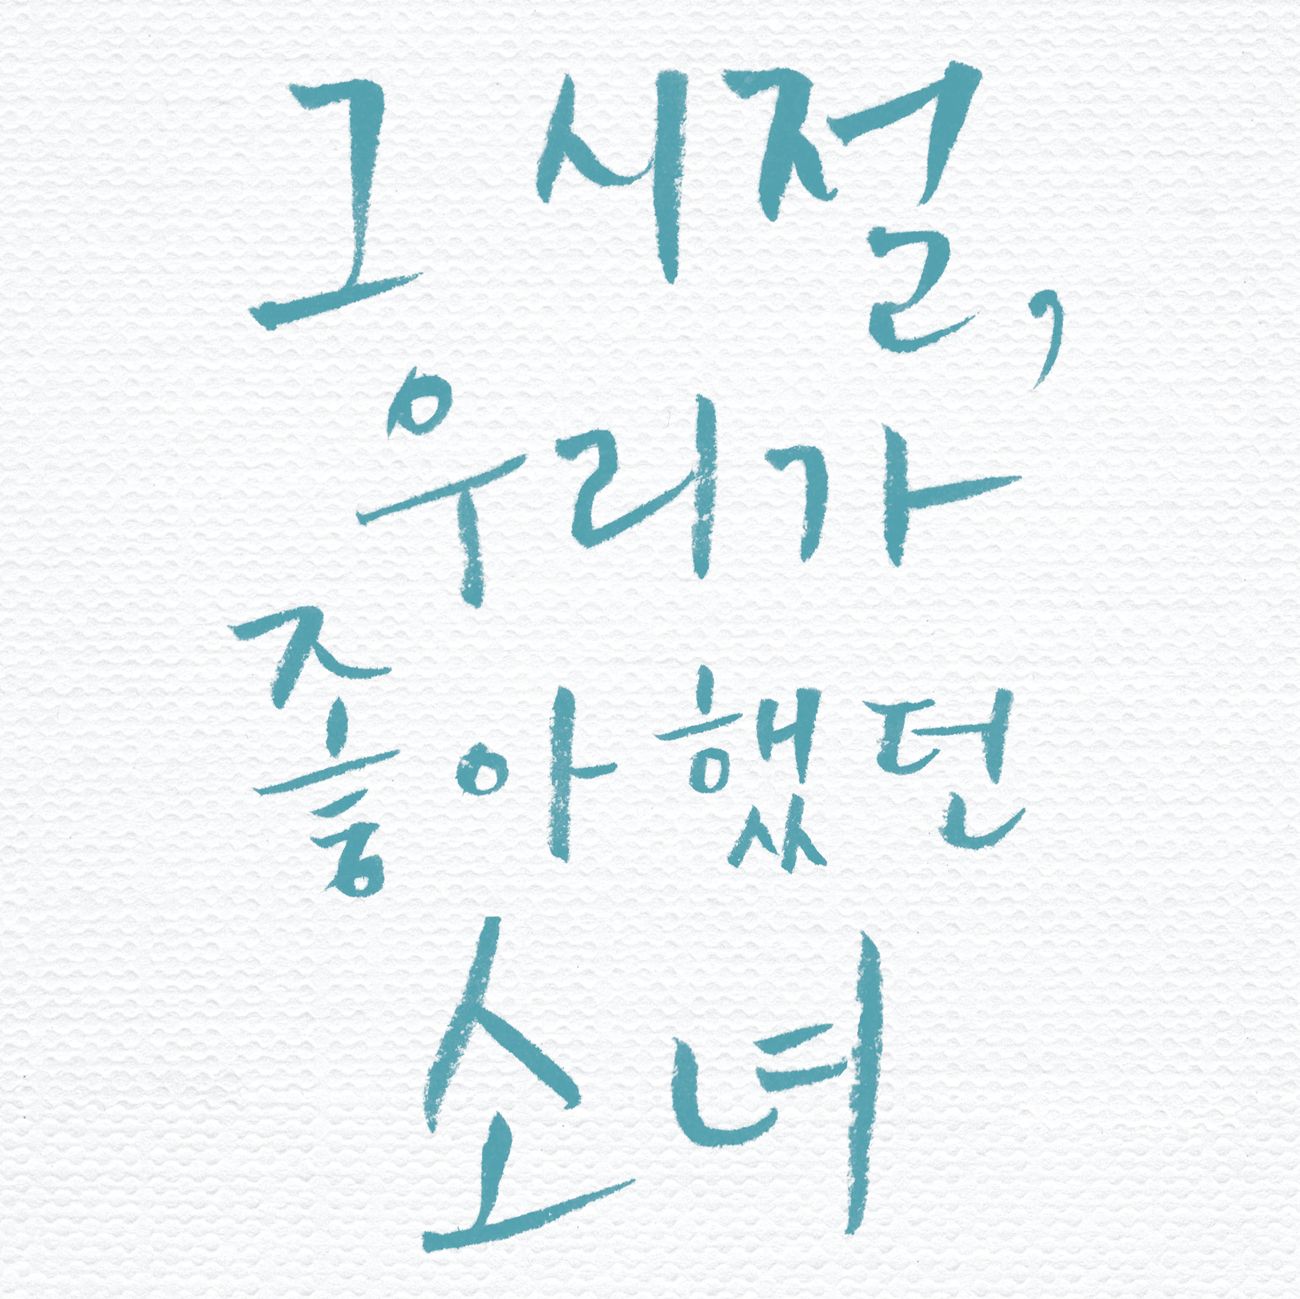 그 시절,
우리가
좋아했던
소녀